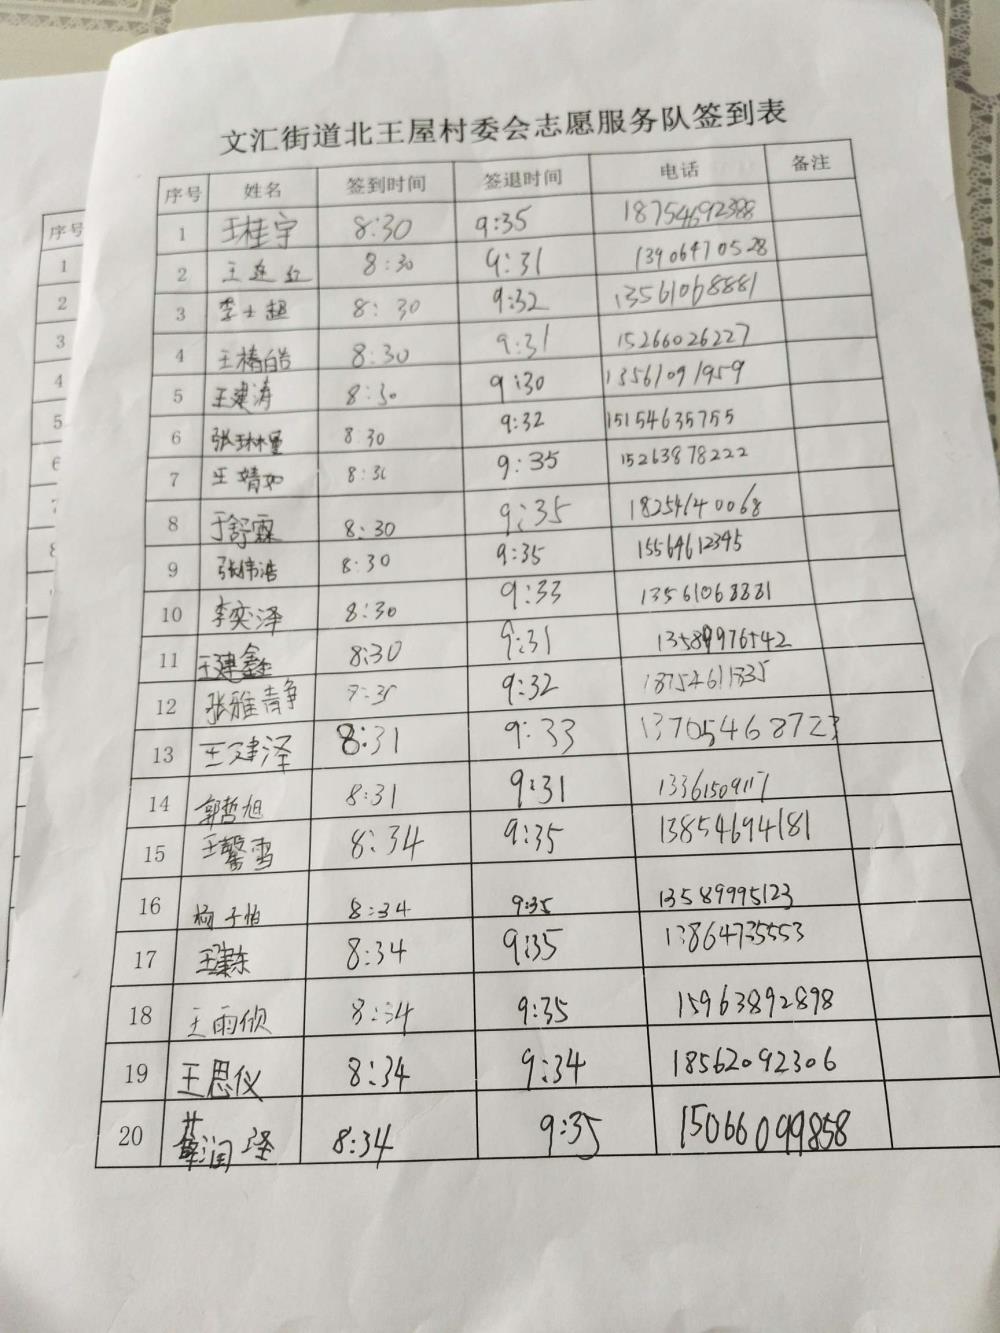 文汇街道北王屋村委会志愿服务队签到表
序号 姓名 签到时间 签退时间 电话 备注
1 王桂宇 8:30 9:35 18754692388
2 王连红 8:30 9:31 13906470528
3 李士超 8:30 9:32 13561068881
4 王椿皓 8:30 9:31 15266026227
5 王建涛 8:30 9:30 13561091959
6 张琳曼 8:30 9:32 15154635755
7 王婧如 8:30 9:35 15263878222
8 于舒霖 8:30 9:35 18254140068
9 张伟浩 8:30 9:35 15564612345
10 李奕泽 8:30 9:33 13561068881
11 王建鑫 8:30 9:31 13589976542
12 张雅静 9:32 18754611835
13 王建泽 8:31 9:33 13705468723
14 郭哲旭 8:31 9:31 13361509117
15 王馨雪 8:34 9:35 13854694181
16 杨子怡 8:34 9:35 13589995123
17 8:34 9:35 13864735553
18 王雨欣 8:34 9:35 15963892898
19 王思仪 8:34 9:34 18562092306
20 薛润泽 8:34 9:35 15066099858
序号
1
2
3
4
5
6
7
8